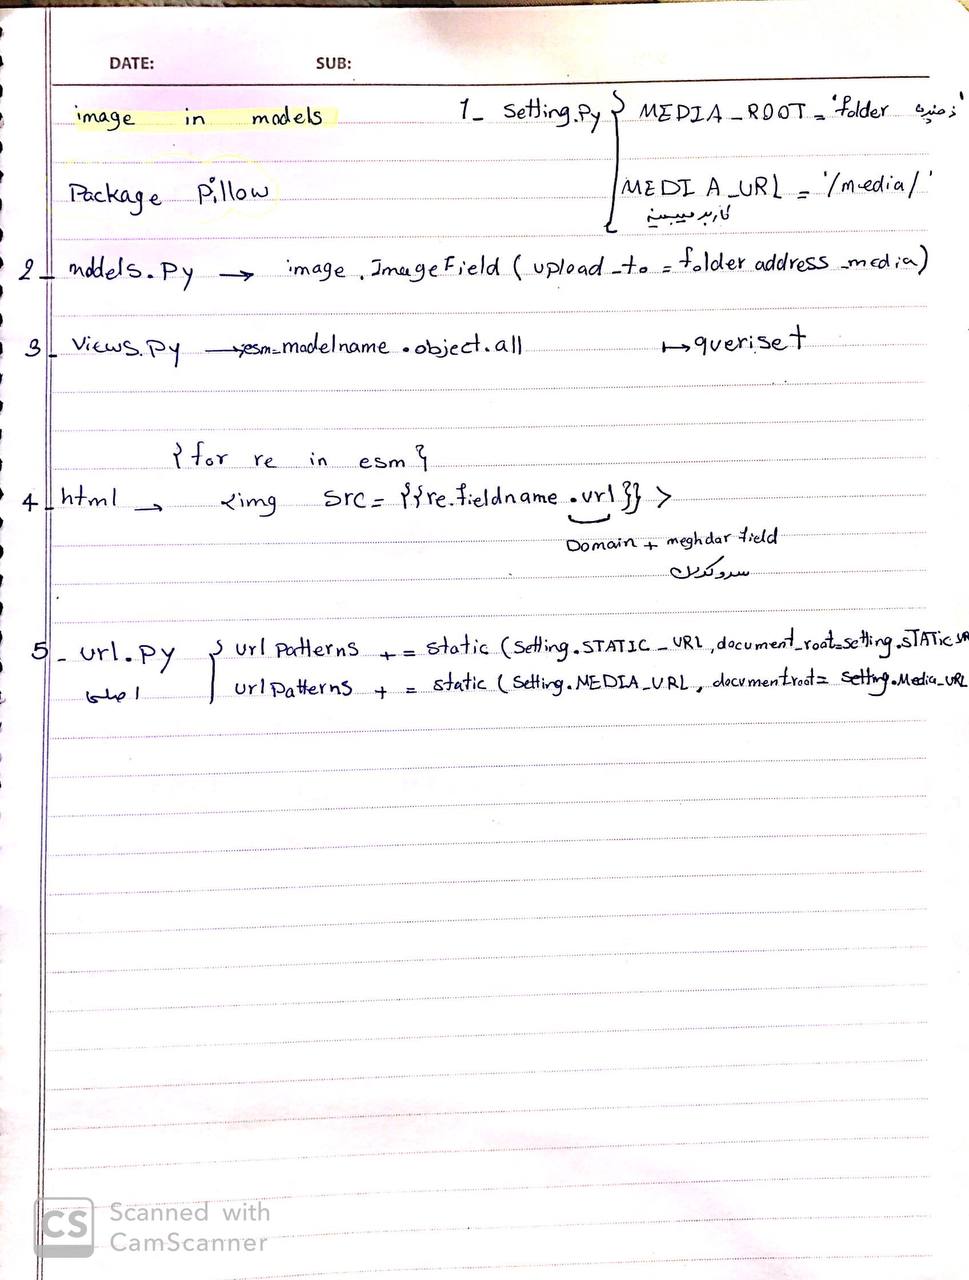 DATE: SUB:
image in models
1_ Setting.Py } MEDIA_ROOT = 'folder ذخیره'
Package Pillow
MEDIA_URL = '/media/'
کاربر میبینه
2_ models.Py → image.ImageField (upload_to = folder address_media)
3_ Views.Py → esm=modelname.object.all ↦ queriset
{for re in esm}
4_ html → <img Src={{re.fieldname.url}}>
Domain + meghdar field
سرو کردن
5_ url.py { url patterns += static (Setting.STATIC_URL, document_root=setting.STATIC_UR
اصلی
urlPatterns += static (Setting.MEDIA_URL, documentroot= Setting.Media_URL
CS Scanned with
CamScanner